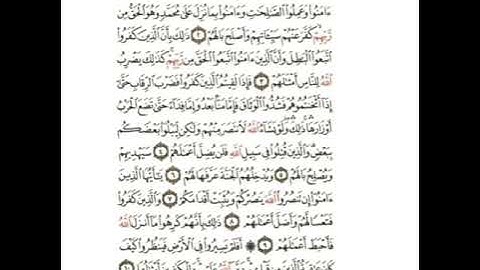 ءَامَنُوا۟ وَعَمِلُوا۟ ٱلصَّـٰلِحَـٰتِ وَءَامَنُوا۟ بِمَا نُزِّلَ عَلَىٰ مُحَمَّدٍ وَهُوَ ٱلْحَقُّ مِن
رَّبِّهِمْ كَفَّرَ عَنْهُمْ سَيِّـَٔاتِهِمْ وَأَصْلَحَ بَالَهُمْ ٢ ذَٰلِكَ بِأَنَّ ٱلَّذِينَ كَفَرُوا۟
ٱتَّبَعُوا۟ ٱلْبَـٰطِلَ وَأَنَّ ٱلَّذِينَ ءَامَنُوا۟ ٱتَّبَعُوا۟ ٱلْحَقَّ مِن رَّبِّهِمْ كَذَٰلِكَ يَضْرِبُ
ٱللَّهُ لِلنَّاسِ أَمْثَـٰلَهُمْ ٣ فَإِذَا لَقِيتُمُ ٱلَّذِينَ كَفَرُوا۟ فَضَرْبَ ٱلرِّقَابِ حَتَّىٰٓ
إِذَآ أَثْخَنتُمُوهُمْ فَشُدُّوا۟ ٱلْوَثَاقَ فَإِمَّا مَنًّۢا بَعْدُ وَإِمَّا فِدَآءً حَتَّىٰ تَضَعَ ٱلْحَرْبُ
أَوْزَارَهَا ذَٰلِكَ وَلَوْ يَشَآءُ ٱللَّهُ لَٱنتَصَرَ مِنْهُمْ وَلَـٰكِن لِّيَبْلُوَا۟ بَعْضَكُم
بِبَعْضٍ وَٱلَّذِينَ قُتِلُوا۟ فِى سَبِيلِ ٱللَّهِ فَلَن يُضِلَّ أَعْمَـٰلَهُمْ ٤ سَيَهْدِيهِمْ
وَيُصْلِحُ بَالَهُمْ ٥ وَيُدْخِلُهُمُ ٱلْجَنَّةَ عَرَّفَهَا لَهُمْ ٦ يَـٰٓأَيُّهَا ٱلَّذِينَ
ءَامَنُوٓا۟ إِن تَنصُرُوا۟ ٱللَّهَ يَنصُرْكُمْ وَيُثَبِّتْ أَقْدَامَكُمْ ٧ وَٱلَّذِينَ كَفَرُوا۟
فَتَعْسًا لَّهُمْ وَأَضَلَّ أَعْمَـٰلَهُمْ ٨ ذَٰلِكَ بِأَنَّهُمْ كَرِهُوا۟ مَآ أَنزَلَ ٱللَّهُ
فَأَحْبَطَ أَعْمَـٰلَهُمْ ٩ ۞ أَفَلَمْ يَسِيرُوا۟ فِى ٱلْأَرْضِ فَيَنظُرُوا۟ كَيْفَ